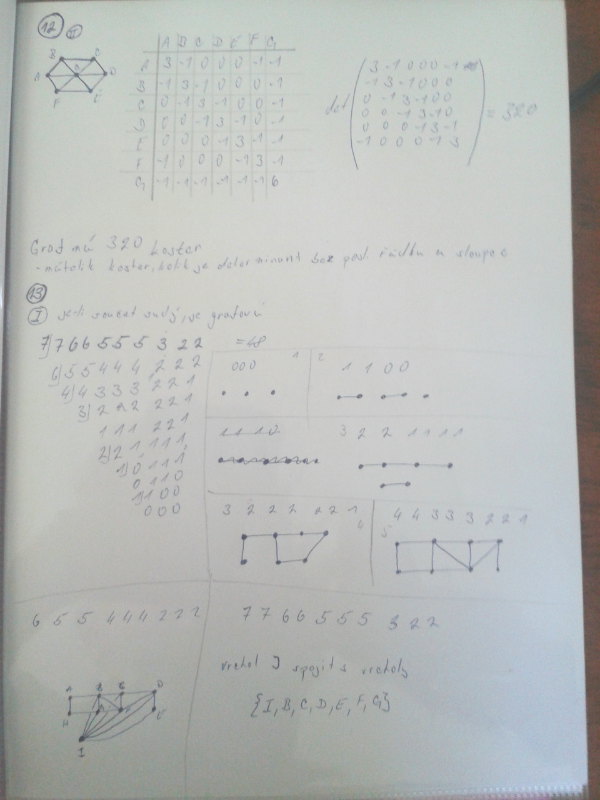 12 II
B C
A G D
F E
A B C D E F G
A 3 -1 0 0 0 -1 -1
B -1 3 -1 0 0 0 -1
C 0 -1 3 -1 0 0 -1
D 0 0 -1 3 -1 0 -1
E 0 0 0 -1 3 -1 -1
F -1 0 0 0 -1 3 -1
G -1 -1 -1 -1 -1 -1 6
3 -1 0 0 0 -1
-1 3 -1 0 0 0
0 -1 3 -1 0 0
det 0 0 -1 3 -1 0 = 320
0 0 0 -1 3 -1
-1 0 0 0 -1 3
Graf má 320 koster
- má tolik koster, kolik je determinant bez posl. řádku a sloupce
13
I je-li součet sudý, je grafová
7) 7 6 6 5 5 5 3 2 2 = 48
6) 5 5 4 4 4 2 2 2
4) 4 3 3 3 2 2 1
3) 2 2 2 2 2 1
1 1 1 2 2 1
2) 2 1 1 1 1
1) 0 1 1 1
0 1 1 0
1) 1 0 0
0 0 0
0 0 0 1
2 1 1 0 0
1 1 1 1 0
3 2 2 1 1 1 1
3 2 2 2 2 2 1 4
4 4 3 3 3 2 2 1
5
6 5 5 4 4 4 2 2 2
A B C D
H E
I
7 7 6 6 5 5 5 3 2 2
vrchol J spojit s vrcholy
{I, B, C, D, E, F, G}